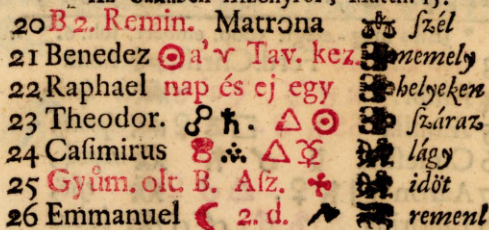 20 B 2. Remin. Matrona ſzél
21 Benedez ☉ a' ♈ Tav. kez. memely
22 Raphael nap és ej egy helyeken
23 Theodor. ☍ ♄. △ ☉ ſzáraz
24 Caſimirus △ ☿ lágy
25 Gyům. olt. B. Aſz. időt
26 Emmanuel ☾ 2. d. remenl